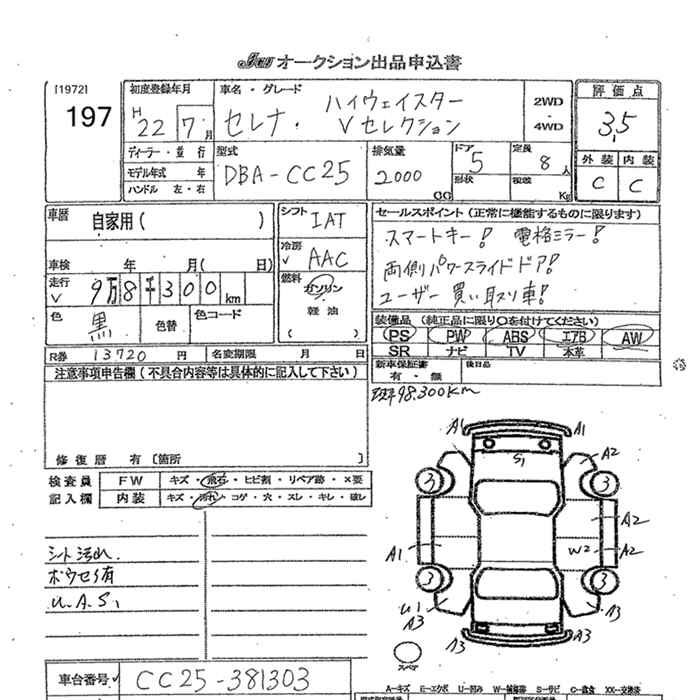 オークション出品申込書
[1972] 初度登録年月 車名・グレード 評価点
197 H 22 7月 セレナ・ハイウェイスター Vセレクション 2WD・4WD 3,5
ディーラー・並行 型式 排気量 ドア 定員 外装 内装
モデル年式 年 DBA-CC25 2000 CC 5 8人 C C
ハンドル 左・右 形状 積載 Kg
車歴 自家用( ) シフト IAT セールスポイント(正常に機能するものに限ります)
スマートキー! 電格ミラー!
車検 年 月( 日) 冷房 AAC 両側パワースライドドア!
走行 9万8千300km 燃料 ガソリン・軽油 ( ) ユーザー買い取り車!
色 黒 色替 色コード 装備品(純正品に限り○を付けてください)
PS PW ABS エアB AW
R券 13720円 名変期限 月 日 SR ナビ TV 本革
注意事項申告欄(不具合内容等は具体的に記入して下さい) 新車保証書 有・無 後日品
98.300km
修復歴 有〔箇所
検査員 FW キズ・飛石・ヒビ割・リペア跡・X要
記入欄 内装 キズ・汚れ・コゲ・穴・スレ・キレ・破レ
シート汚れ.
U.A.S,
A1 A1
S1 A2
3 3
A2
A1 W2 A2
3 3
U1 A3
A3
A3 A3
スペア
車台番号 CC25-381303
A-キズ E-エクボ U-凹み W-補修跡 S-サビ C-腐食 XX-交換済